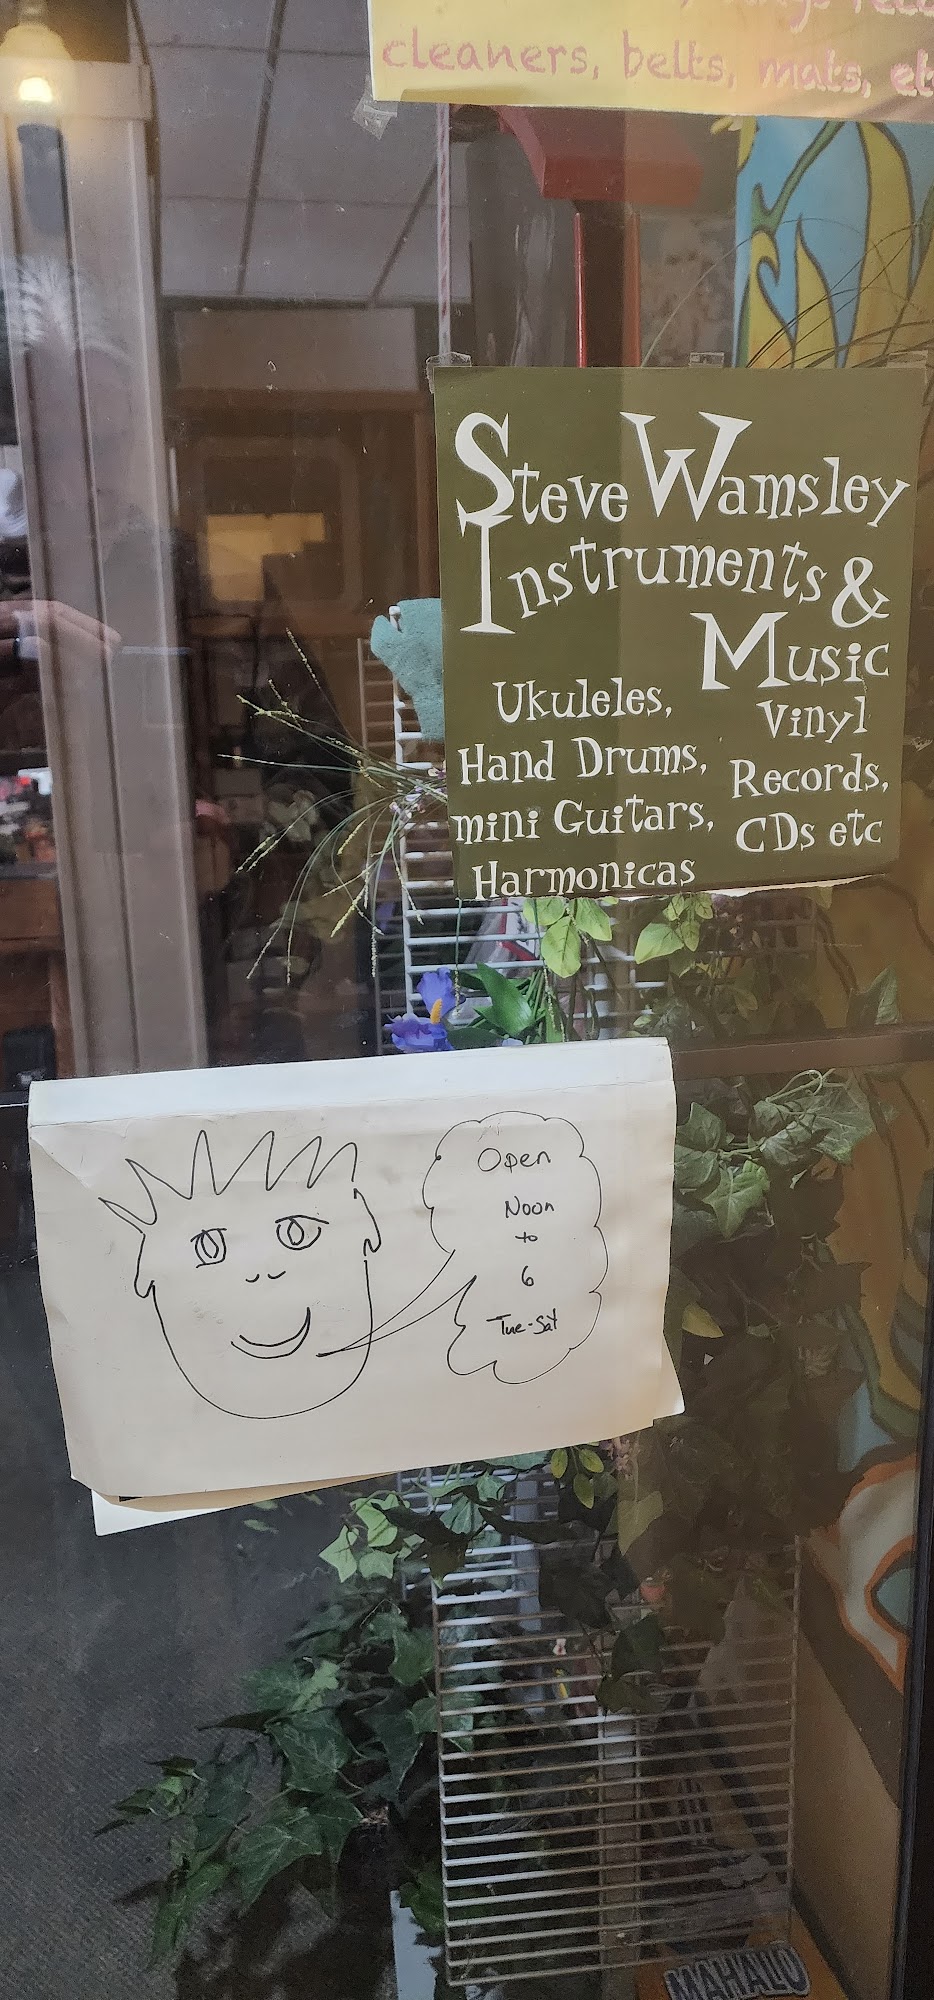 cleaners, belts, mats,
Steve Wamsley
Instruments &
Music
Ukuleles,
Hand Drums,
mini Guitars,
Harmonicas
Vinyl
Records,
CDs etc
Open
Noon
to
6
Tue-Sat
MAHALO